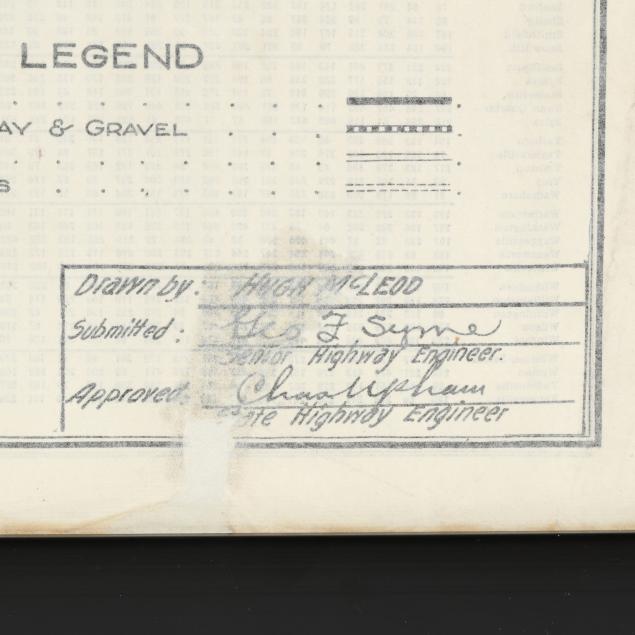 LEGEND
AY & GRAVEL
S
Drawn by: HUGH McLEOD
Submitted: Geo F Syme
Senior Highway Engineer.
Approved: Chas M Upham
State Highway Engineer